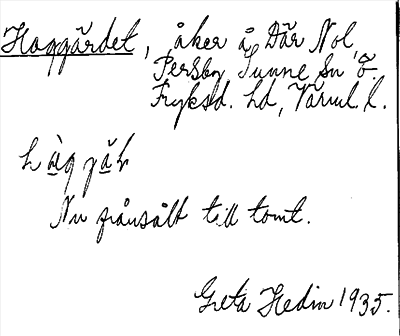 Haggärdet, åker å Där Nol,
Persby Sunne Sn Ö.
Fryksd. Hd, Värml. l.
Nu frånsålt till tomt.
Greta Hedin 1935.